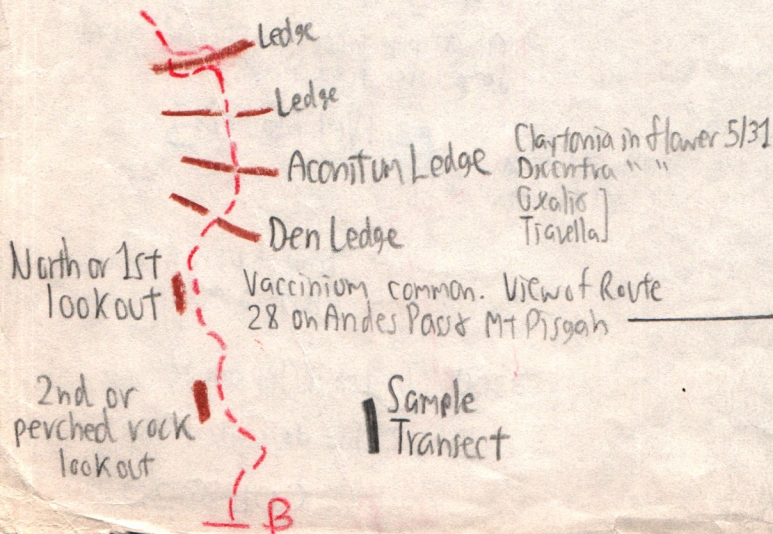 Ledge
Ledge
Aconitum Ledge
Claytonia in flower 5/31
Dicentra " "
Oxalis ]
Tiarella ]
Den Ledge
North or 1st
lookout
Vaccinium common. View of Route
28 on Andes Pass & Mt Pisgah
2nd or
perched rock
lookout
Sample
Transect
B